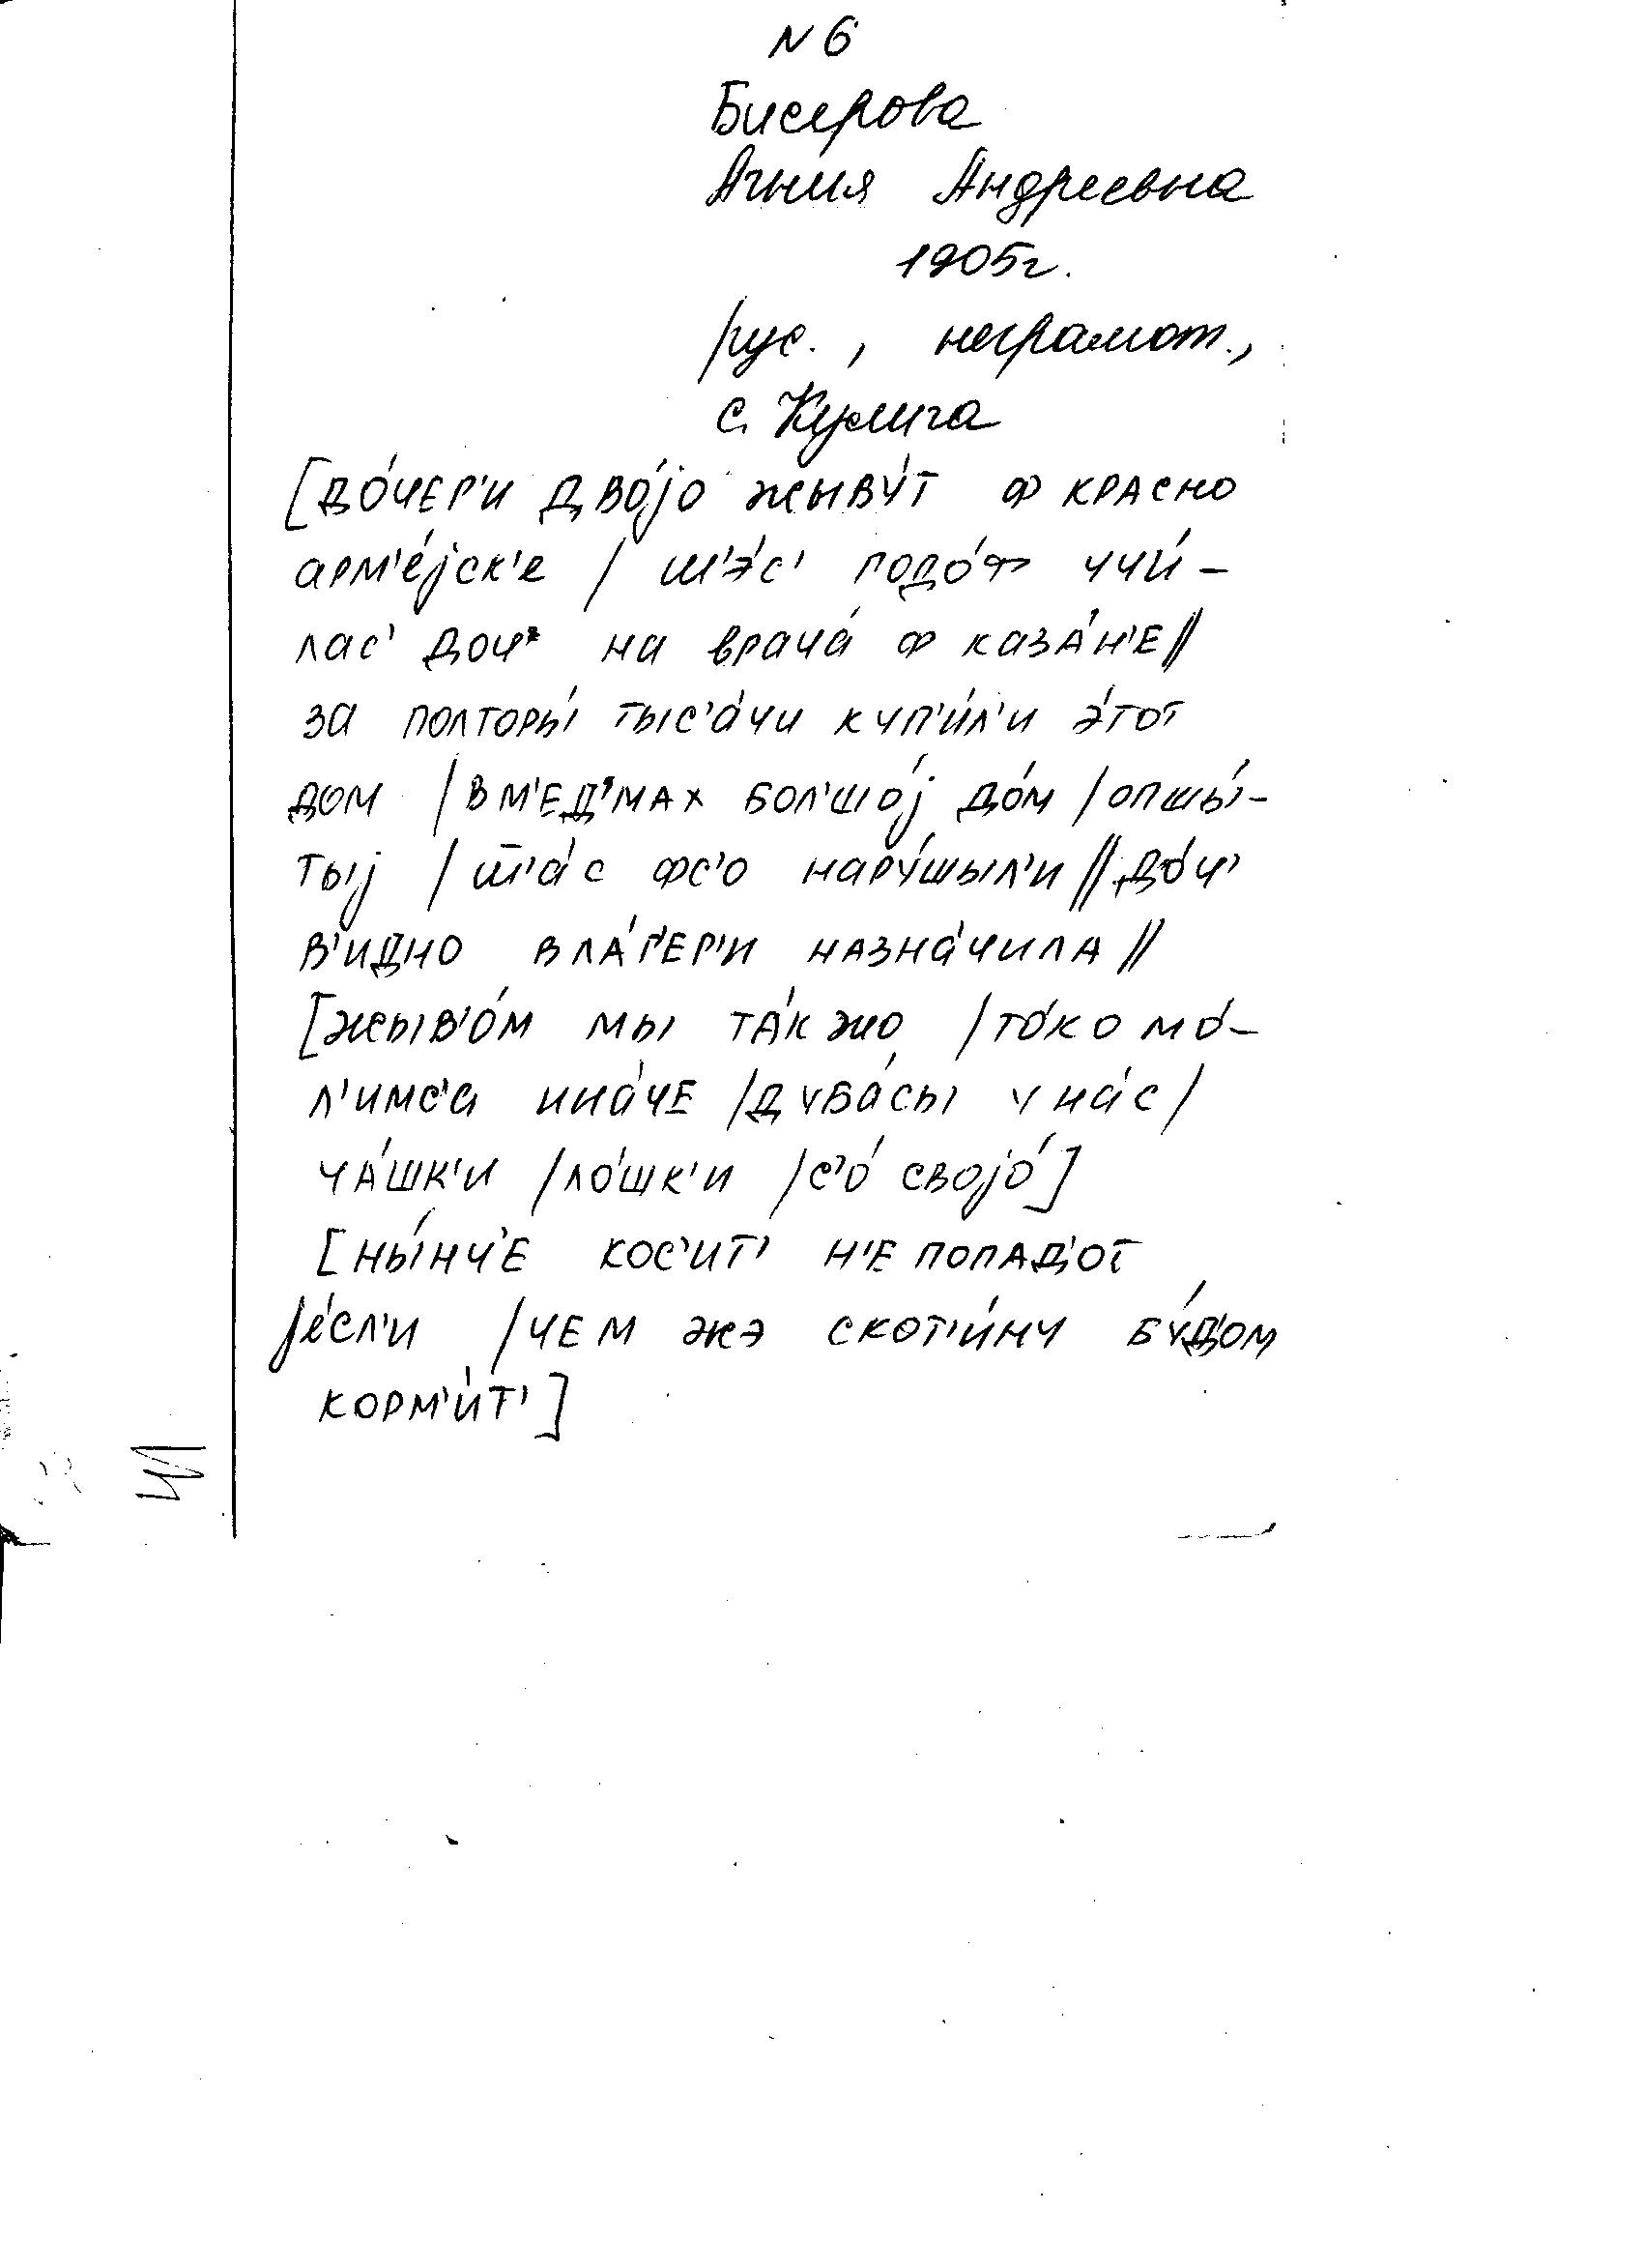 N 6
Бисерова
Агния Андреевна
1905г.
рус., неграмот.,
с. Кулига
[до́чер'и дво́jо жыву́т ф красно
арм'е́jск'е / ш'э́с' годо́ф учи́-
лас' доч' на врача́ ф каза́н'е //
за полторы́ тыс'а́чи куп'и́л'и э́тот
дом / в м'ед'мах бол'шо́j до́м / опшы́-
тыj / ш'а́с фс'о нару́шыл'и // до́ч'
в'идно в ла́г'ер'и назна́чила //
[жыв'о́м мы та́к жо / то́ко мо́-
л'имс'а ина́че / дуба́сы у на́с /
ча́шк'и / ло́шк'и / с'о́ своjо́]
[ны́нч'е кос'ит' н'е попад'от
jе́сл'и / чем жэ скот'и́ну бу́д'ом
корм'и́т']
41